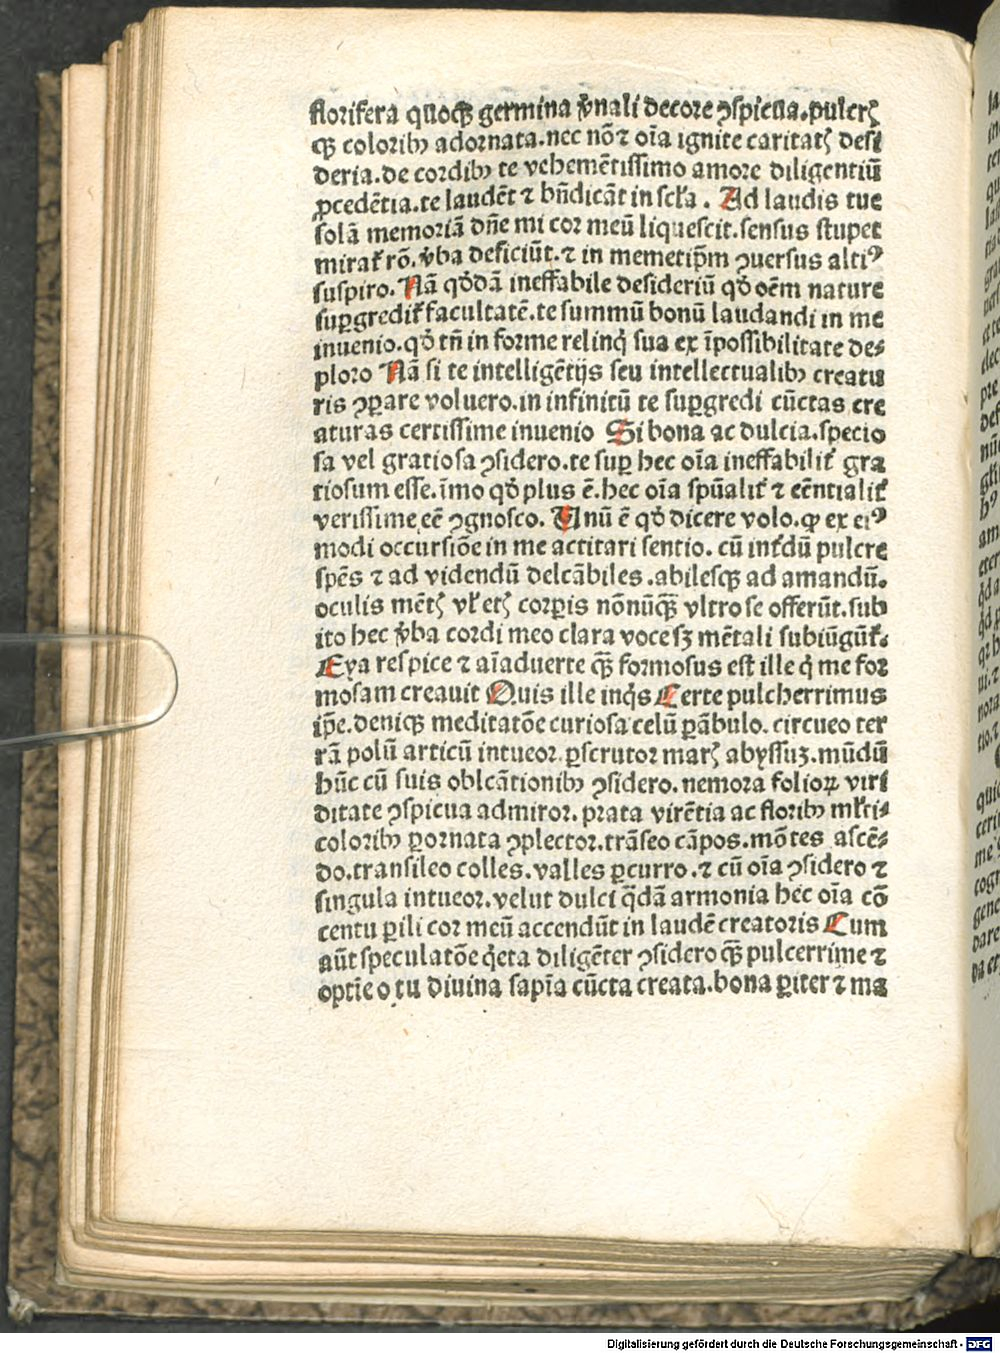 florifera quoqꝫ germina v̓nali decore ꝯspicua.pulcrꝭ
qꝫ coloribꝰ adornata.nec nō ⁊ oīa ignite caritatꝭ desi
deria.de cordibꝰ te vehemētissimo amore diligentiū
ꝓcedētia.te laudēt ⁊ bn̄dicāt in scl̓a . Ad laudis tue
solā memoriā dn̄e mi cor meū liquescit.sensus stupet
mirat̓ rō. v̓ba deficiūt.⁊ in memetip̄m ꝯuersus altiꝰ
suspiro. Nā qd̓dā ineffabile desideriū qd̓ oēm nature
suꝑgredit̓ facultatē.te summū bonū laudandi in me
inuenio.qd̓ tn̄ in forme relinq̓ sua ex īpossibilitate de⸗
ploro Nā si te intelligētijs seu intellectualibꝰ creatu
ris ꝯꝑare voluero.in infinitū te suꝑgredi cūctas cre
aturas certissime inuenio Si bona ac dulcia.specio
sa vel gratiosa ꝯsidero.te suꝑ hec oīa ineffabilit̓ gra
tiosum esse.īmo qd̓ plus ē.hec oīa spūalit̓ ⁊ eēntialit̓
verissime eē ꝯgnosco. Unū ē qd̓ dicere volo.qꝛ ex eiꝰ
modi occursiōe in me actitari sentio. cū int̓dū pulcre
spēs ⁊ ad videndū delcābiles .abilesqꝫ ad amandū.
oculis mētꝭ vl̓ etꝭ corꝑis nōnūqꝫ vltro se offerūt.sub
ito hec v̓ba cordi meo clara voce sꝫ mētali subiūgūt̓.
Eya respice ⁊ aīaduerte qꝫ formosus est ille q̓ me for
mosam creauit Quis ille inq̓s Certe pulcherrimus
ip̄e.deniqꝫ meditatōe curiosa celū ꝑābulo. circueo ter
rā polū articū intueor ꝑscrutor marꝭ abyssuꝫ.mūdū
hūc cū suis oblcātionibꝰ ꝯsidero. nemora folioꝝ viri
ditate ꝯspicua admiror. prata virētia ac floribꝰ ml̓ti⸗
coloribꝰ ꝑornata ꝯplector.trāseo cāpos.mōtes ascē⸗
do.transileo colles.valles ꝑcurro.⁊ cū oīa ꝯsidero ⁊
singula intueor.velut dulci q̄dā armonia hec oīa cō
centu ꝑili cor meū accendūt in laudē creatoris Cum
aūt speculatōe q̓eta diligēter ꝯsidero qꝫ pulcerrime ⁊
optīe o tu diuina sapīa cūcta creata.bona ꝑiter ⁊ ma
Digitalisierung gefördert durch die Deutsche Forschungsgemeinschaft - DFG